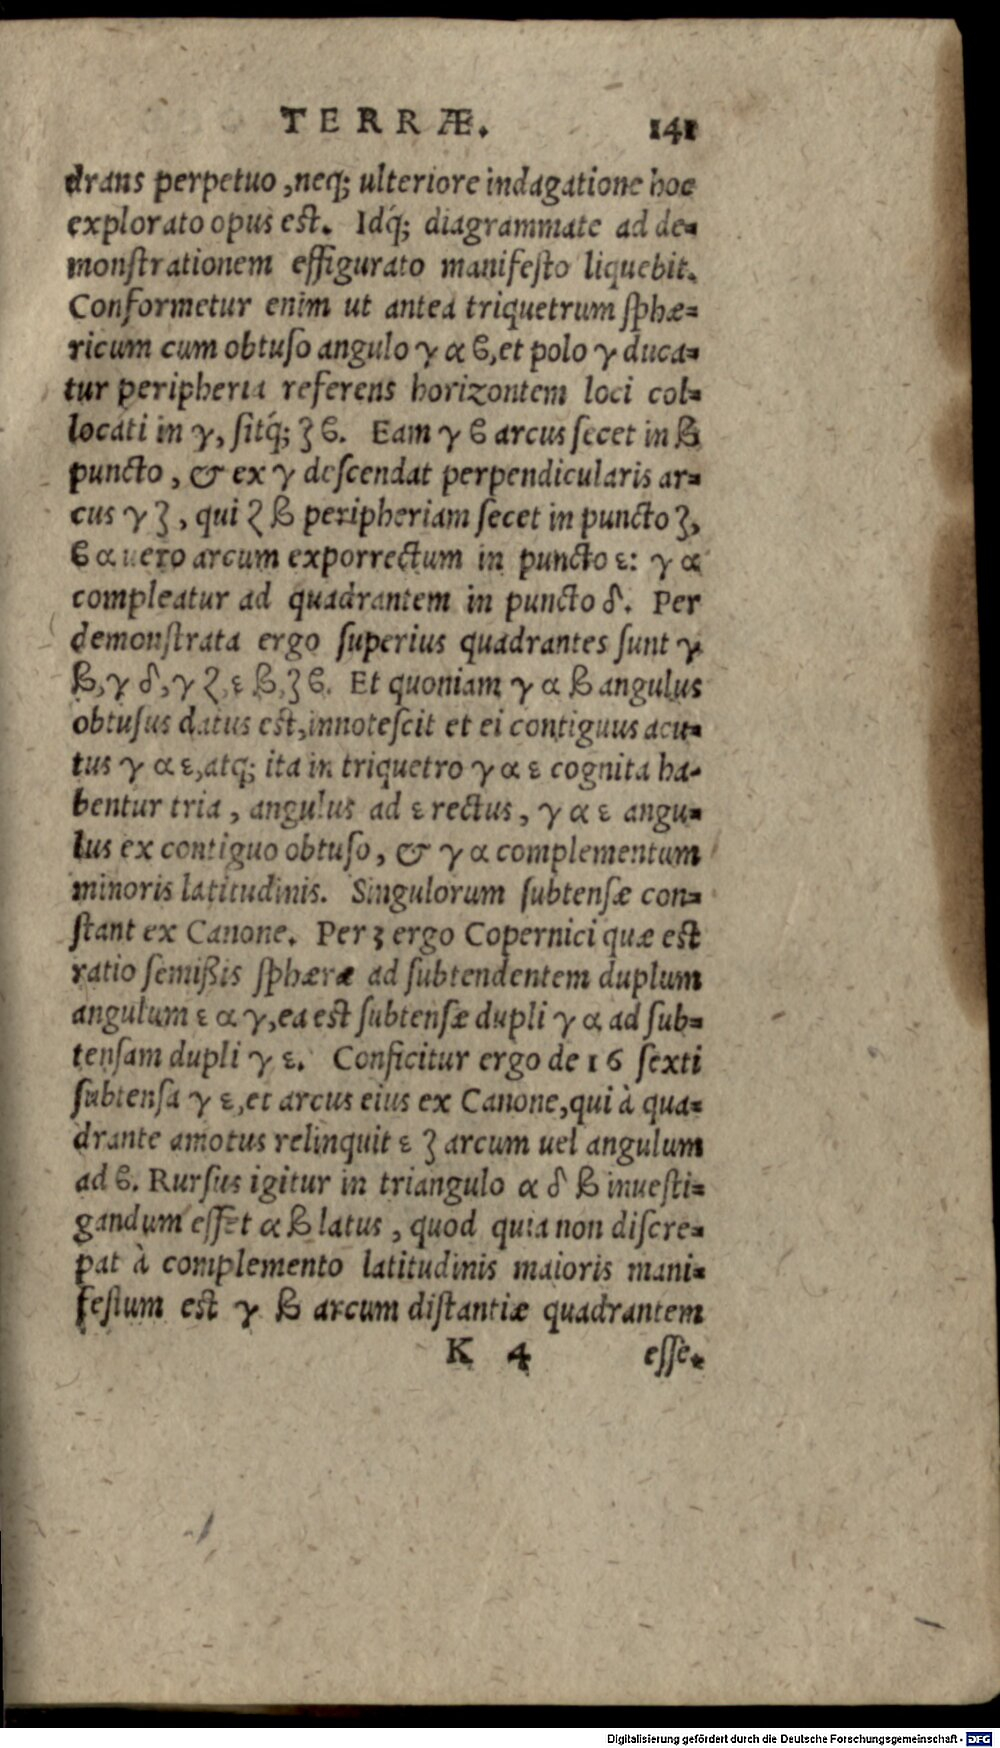 TERRÆ. 141
drans perpetuo, neq; ulteriore indagatione hoc
explorato opus est. Idq́; diagrammate ad de=
monſtrationem effigurato manifeſto liquebit.
Conformetur enim ut antea triquetrum ſphæ=
ricum cum obtuſo angulo γ α ϐ, et polo γ duca=
tur peripheria referens horizontem loci col=
locati in γ, ſitq́; ȝ ϐ. Eam γ ϐ arcus ſecet in ß
puncto, & ex γ deſcendat perpendicularis ar=
cus γ ȝ, qui ζ ß peripheriam ſecet in puncto ȝ,
ϐ α uero arcum exporrectum in puncto ε: γ α
compleatur ad quadrantem in puncto δ. Per
demonſtrata ergo ſuperius quadrantes ſunt γ
ß, γ δ, γ ζ, ε ß, ȝ ϐ. Et quoniam γ α ß angulus
obtuſus datus est, innoteſcit et ei contiguus acu=
tus γ α ε, atq; ita in triquetro γ α ε cognita ha=
bentur tria, angulus ad ε rectus, γ α ε angu=
lus ex contiguo obtuſo, & γ α complementum
minoris latitudinis. Singulorum ſubtenſæ con=
ſtant ex Canone. Per 3 ergo Copernici quæ est
ratio ſemißis ſphæræ ad ſubtendentem duplum
angulum ε α γ, ea est ſubtenſæ dupli γ α ad ſub=
tenſam dupli γ ε. Conficitur ergo de 16 ſexti
ſubtenſa γ ε, et arcus eius ex Canone, qui à qua=
drante amotus relinquit ε ȝ arcum uel angulum
ad ϐ. Rurſus igitur in triangulo α δ ß inueſti=
gandum eſſet α ß latus, quod quia non diſcre=
pat à complemento latitudinis maioris mani=
feſtum est γ ß arcum diſtantiæ quadrantem
K 4 eſſe.
Digitalisierung gefördert durch die Deutsche Forschungsgemeinschaft - DFG